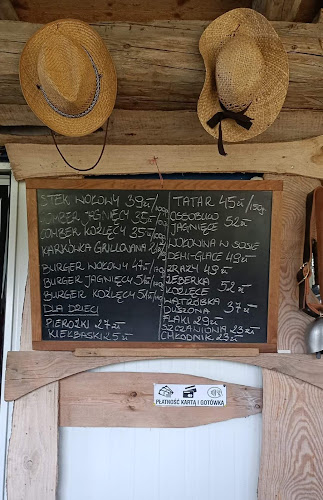 STEK WOŁOWY 39zł/100g
COMBER JAGNIĘCY 35zł/100g
COMBER KOŹLĘCY 35zł/100g
KARKÓWKA GRILLOWANA
BURGER WOŁOWY 47zł
BURGER JAGNIĘCY 51zł
BURGER KOŹLĘCY 51zł
DLA DZIECI
PIEROŻKI 27zł
KIEŁBASKI 25zł
TATAR 45zł/150g
OSSOBUCO JAGNIĘCE 52zł
WOŁOWINA W SOSIE
DEMI-GLACE 49zł
ZRAZY 49zł
ŻEBERKA
KOŹLĘCE 52zł
WĄTRÓBKA
DUSZONA 37zł
FLAKI 29zł
SZCZAWIOWA 23zł
CHŁODNIK 23zł
PŁATNOŚĆ KARTĄ I GOTÓWKĄ